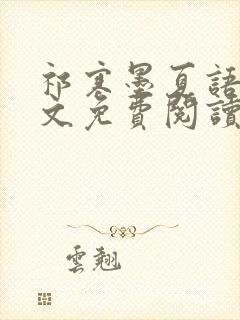 祁寒墨夏語
文免費閱讀
雲翹